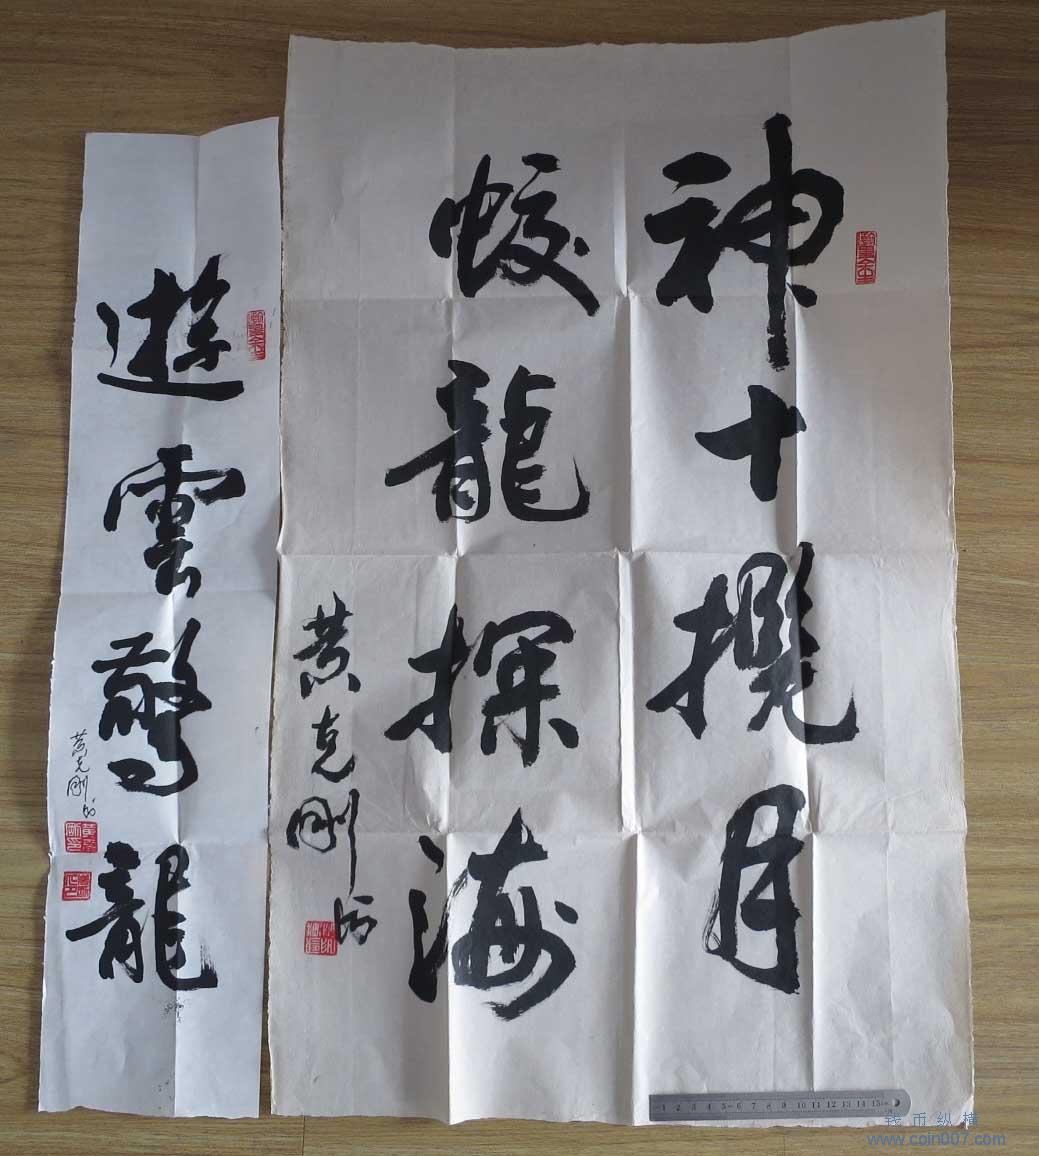 神十攬月
蛟龍探海
黄克刚书
遊雲驚龍
黄克刚书
1 2 3 4 5 6 7 8 9 10 11 12 13 14 15
钱币纵横
www.coin007.com